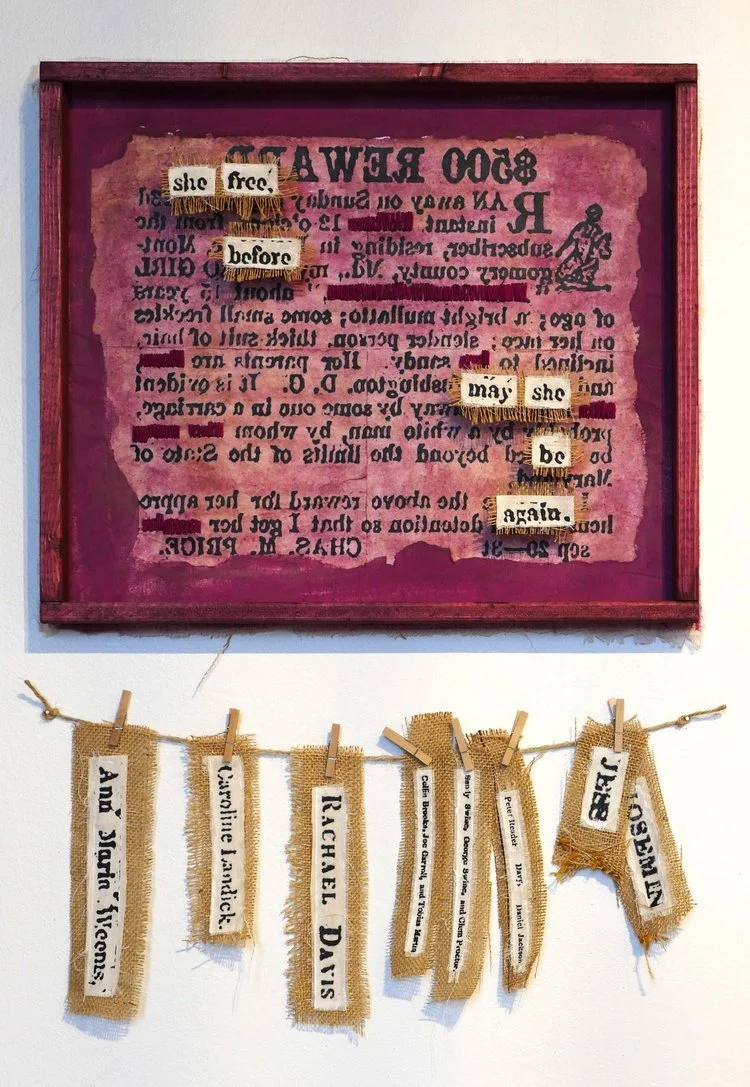 she free,
before
may she
be
again.
$500 REWARD
RAN away on Sunday
instant, 12 o'clock, from the
subscriber, residing in Mont-
gomery county, Md., my GIRL
about 15 years
of age; a bright mullatto; some small freckles
on her face; slender person, thick suit of hair,
inclined to sandy. Her parents are
Washington, D. C. It is evident
away by some one in a carriage,
by a white man, by whom
be beyond the limits of the State of
the above reward for her appre
detention so that I get her
sep 20—3t CHAS. M. PRICE.
Ann Maria Weems,
Caroline Landick.
RACHAEL DAVIS
Collin Brooks, Joe Carroll, and Tobias Martin
Sandy Swins, George Swins, and Clem Proctor.
Peter Reader Davy, Daniel Jackson
JESS
JOSEMIN